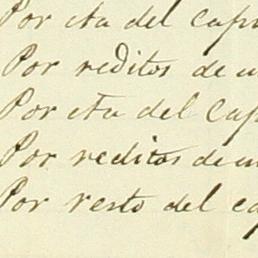 Por cta del Cap
Por reditos de
Por cta del Cap
Por reditos de
Por resto del